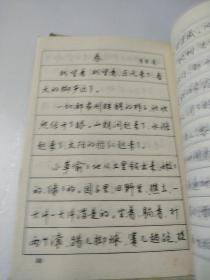 春
朱自清
盼望着，盼望着，东风来了，春
天的脚步近了。
一切都像刚睡醒的样子，欣欣
然张开了眼。山朗润起来了，水涨
起来了，太阳的脸红起来了。
小草偷偷地从土里钻出来，嫩嫩
的，绿绿的。园子里，田野里，瞧去，一
大片一大片满是的。坐着，躺着，打
两个滚，踢几脚球，赛几趟跑，捉